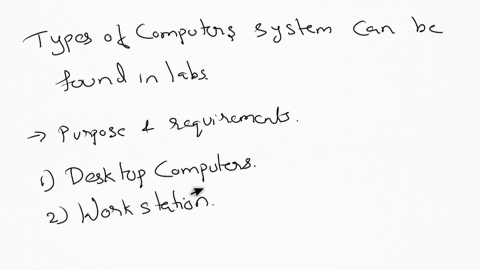 Types of Computers system can be
found in labs
→ Purpose & requirements.
1) Desktop Computers.
2) Work station.